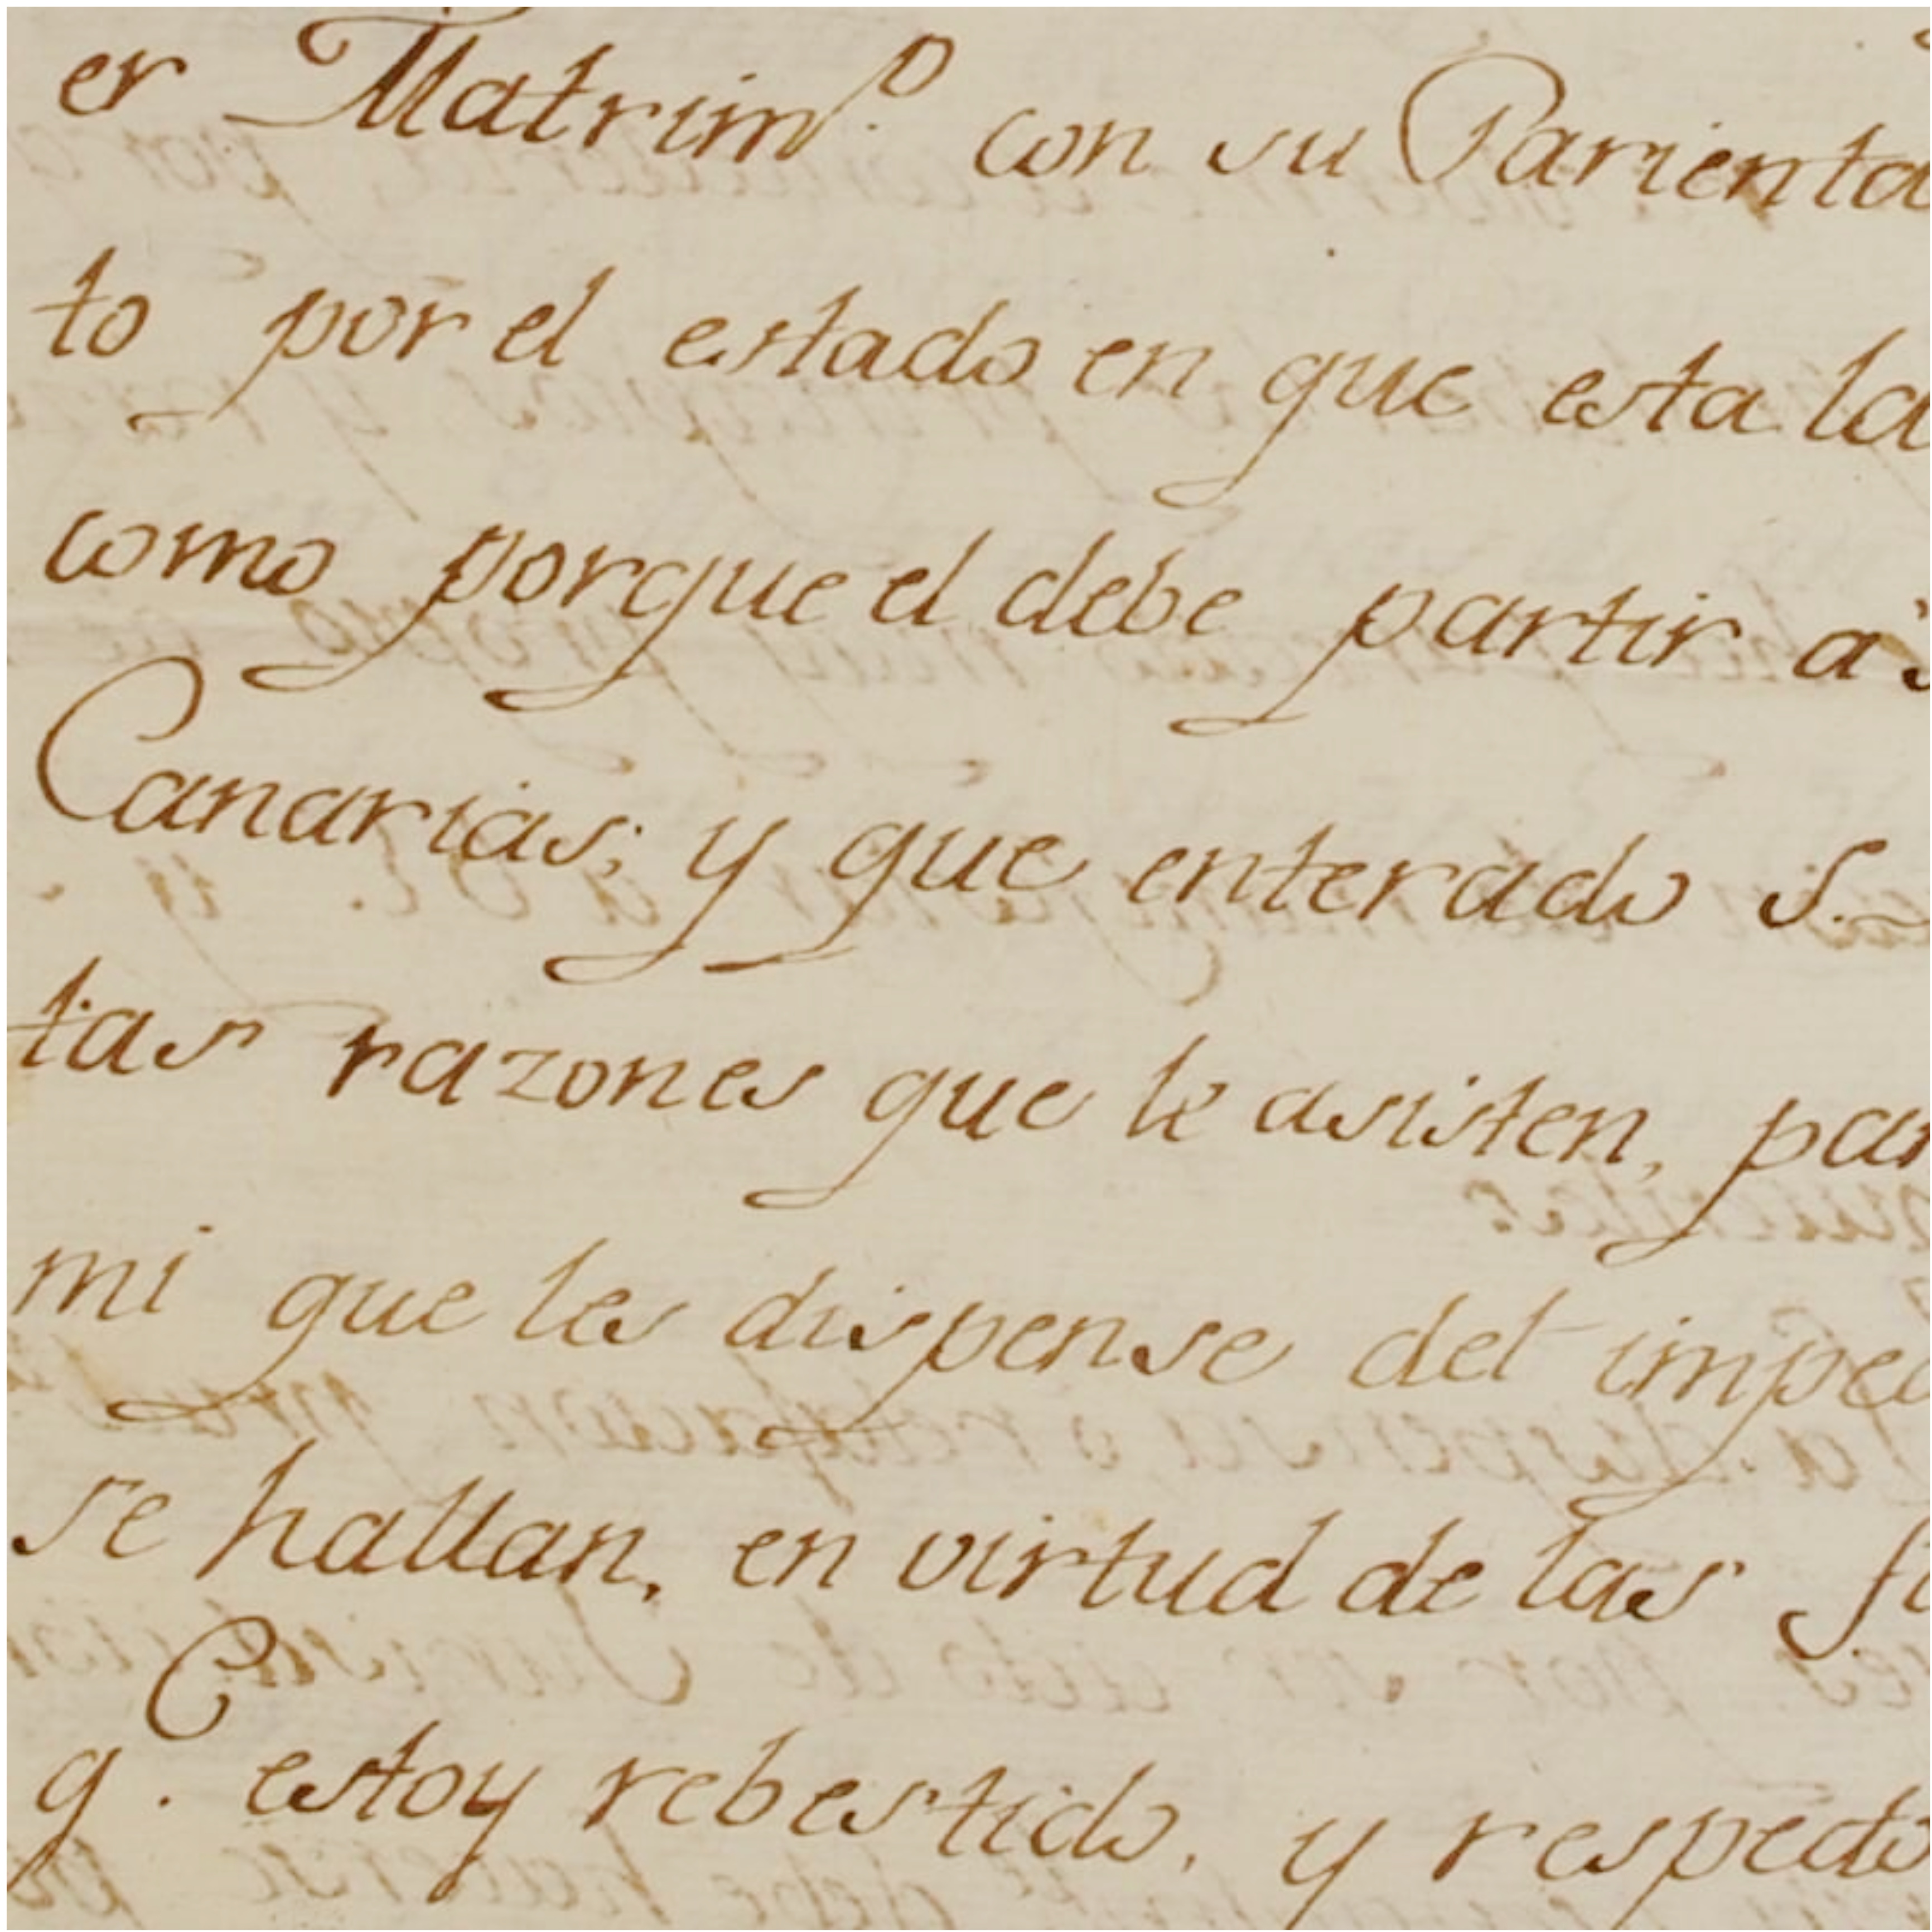 er Matrim.º con su Parienta
to por el estado en que esta la
como porque el debe partir a
Canarias; y que enterado S.
tas razones que le asisten, par
mi que les dispense del imped
se hallan, en virtud de las
q.e estoy rebestido, y respecto